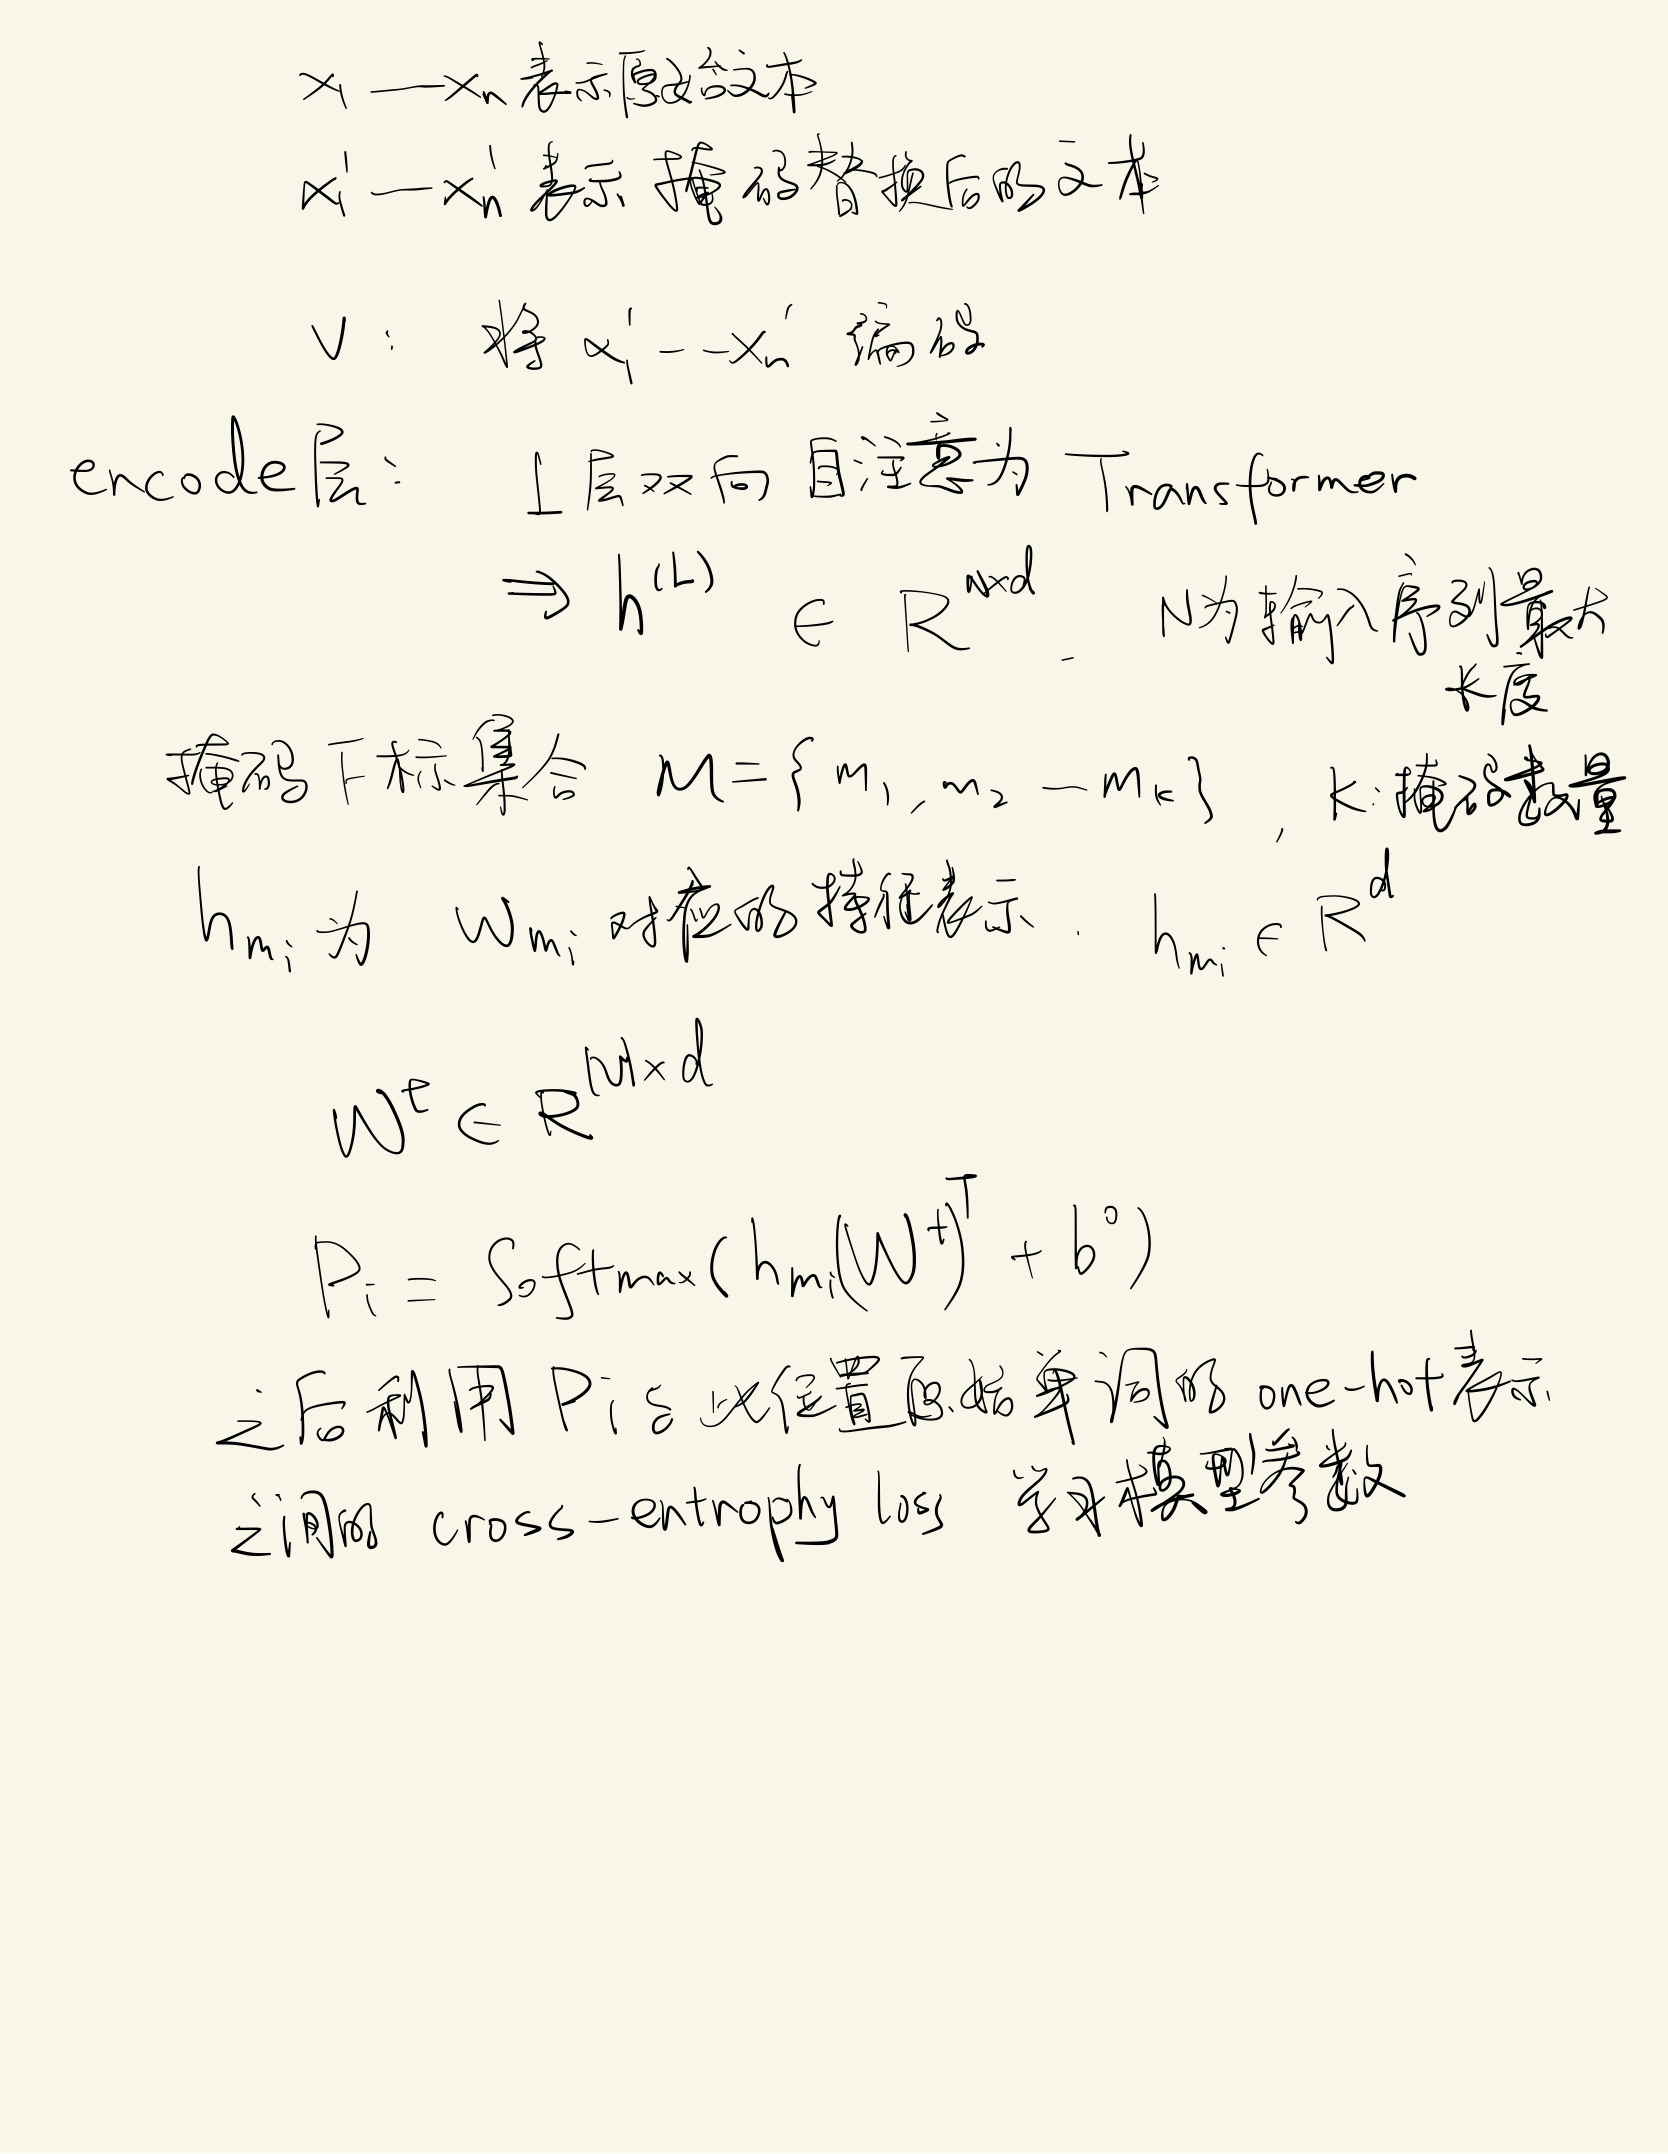 x₁ — xₙ 表示原始文本
x₁' — xₙ' 表示掩码替换后的文本
V : 将 x₁' -- xₙ' 编码
encode层: L层双向自注意力 Transformer
⇒ h^(L) ∈ R^(N×d). N为输入序列最大
长度
掩码下标集合 M = { m₁, m₂ — mₖ }, K:掩码数量
h_mi 为 w_mi 对应的特征表示. h_mi ∈ R^d
W^t ∈ R^(|V|×d)
P_i = Softmax( h_mi (W^t)^T + b^o )
之后利用 P_i 与此位置原始单词的 one-hot表示
之间的 cross-entrophy loss 学习模型参数